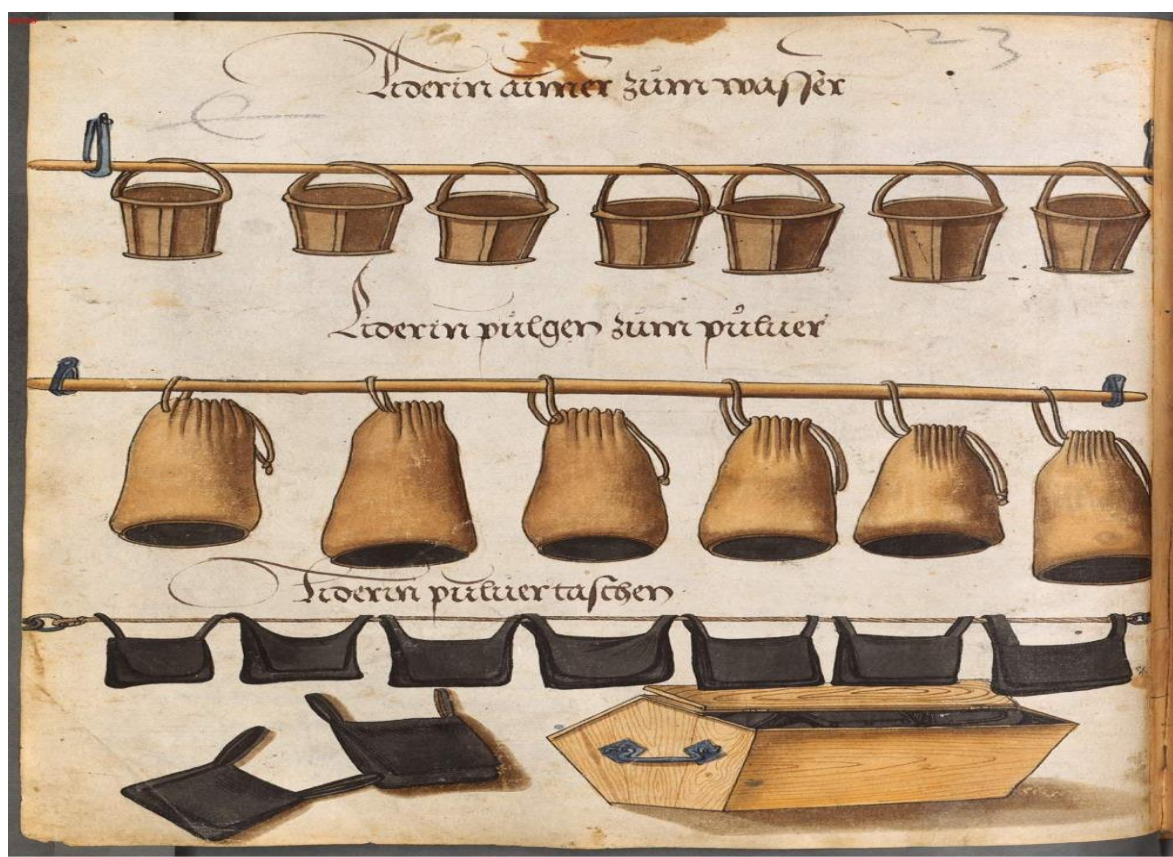 23
Liderin aimer zům wasser
Liderin půlgen zům půluer
Liderin půluer taschen